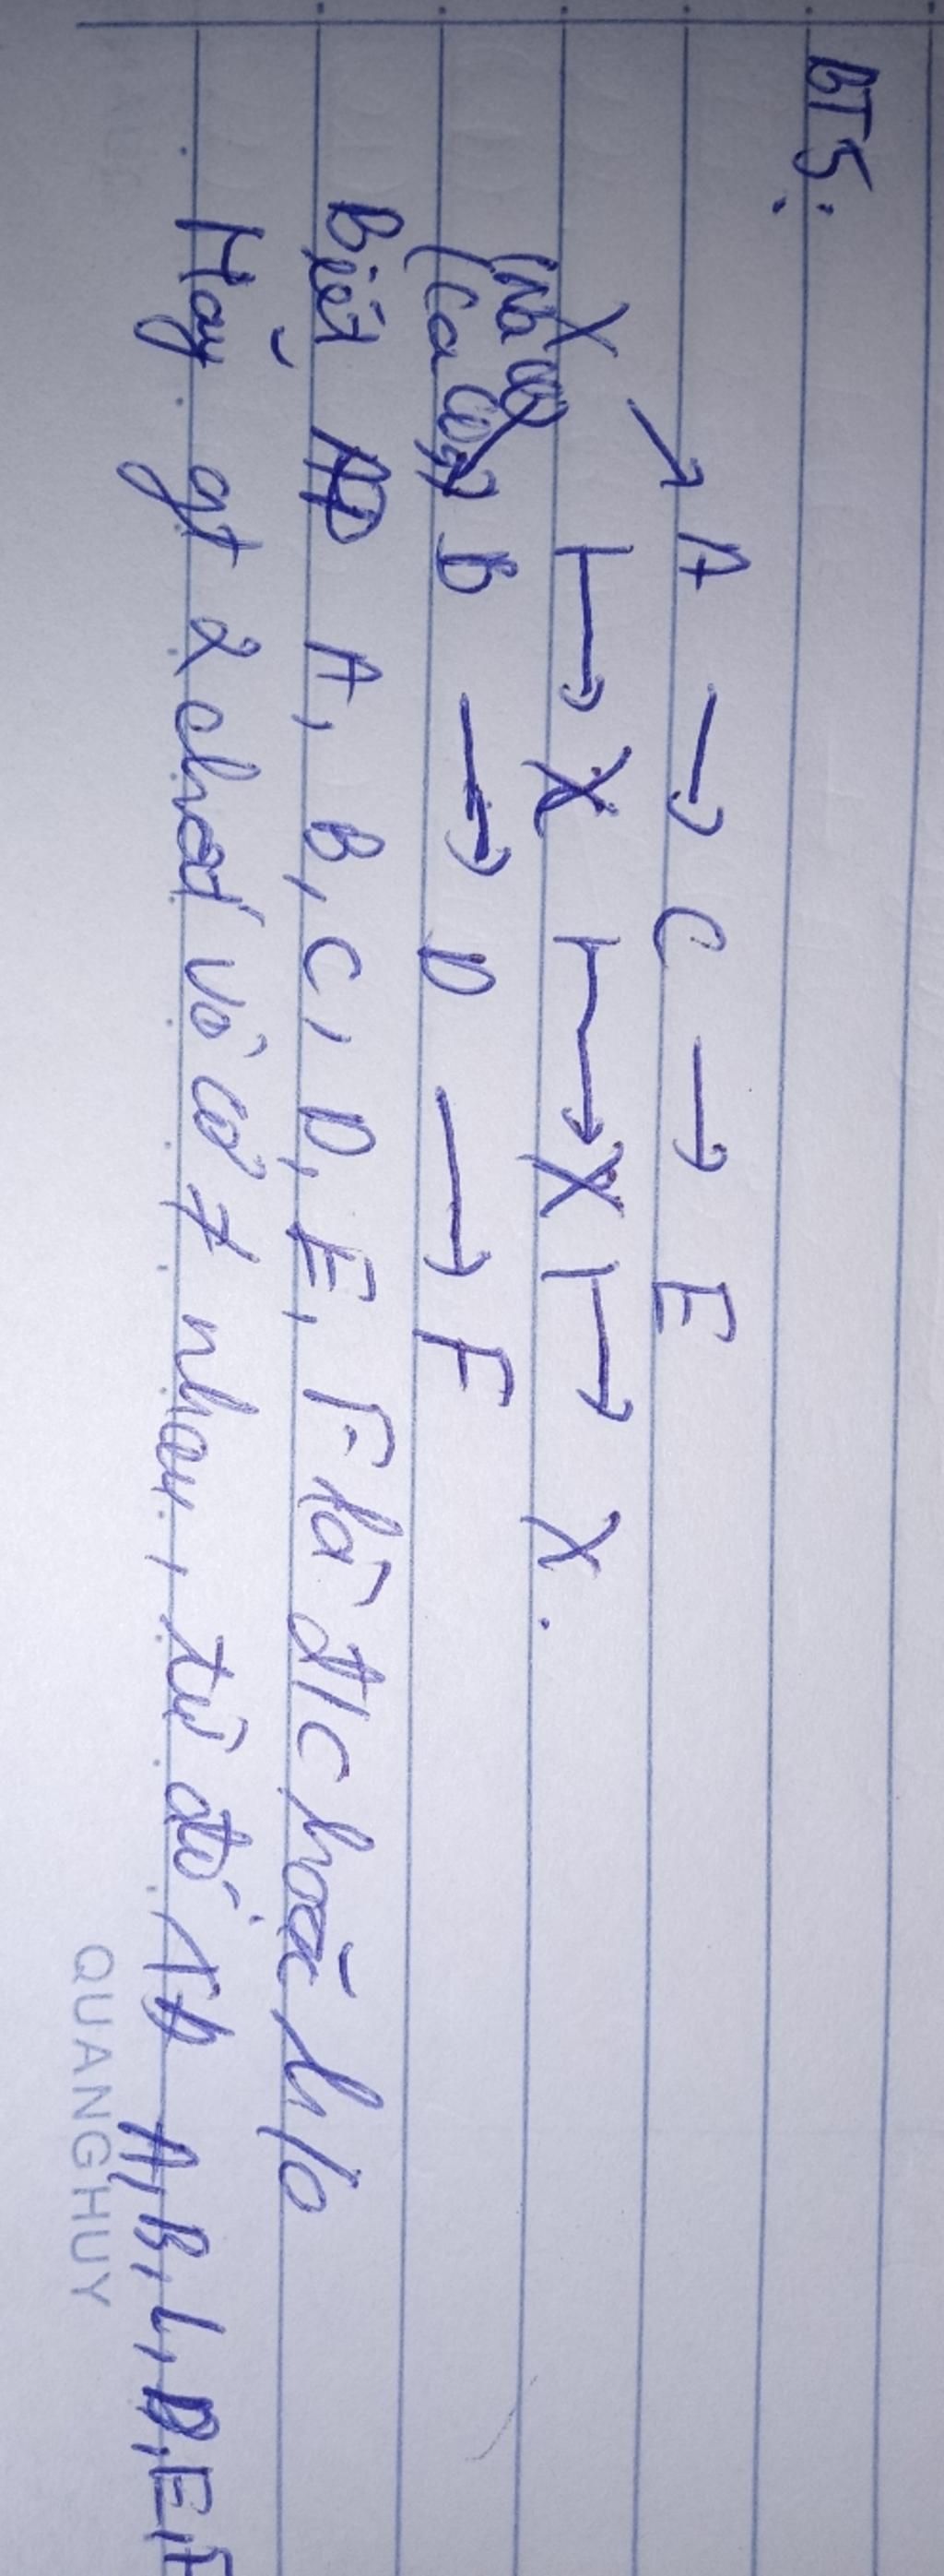 BT5:
A → C → E
X ↗ ↦ X ↦ X ↦ X.
(NaCl)
(CaCO3) B → D → F
Biết A, B, C, D, E, F là đ/c hoặc h/c
Hãy gt 2 chất vô cơ ≠ nhau, từ đó A, B, C, D, E, F
QUANGHUY